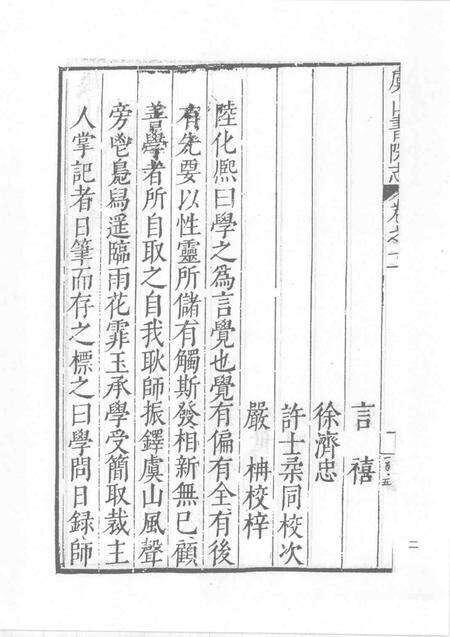 虞山書院志 卷之十一
言禧
徐濟忠
許士柔同校次
嚴栴校梓
陸化熙曰學之為言覺也覺有偏有全有後
有先要以性靈所儲有觸斯發相新無已顧
善學者所自取之自我耿師振鐸虞山風聲
旁鬯鳧舄遥臨雨花霏玉承學受簡取裁主
人掌記者日筆而存之標之曰學問日録師
二